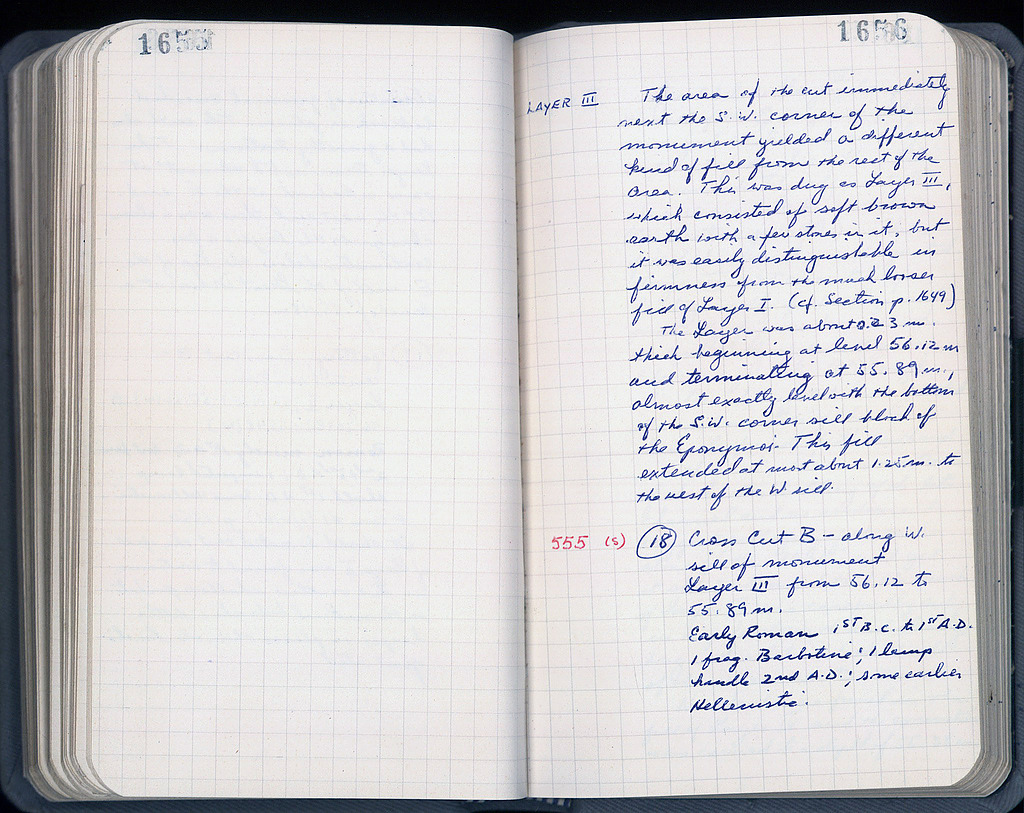 1655
1656
LAYER III
The area of the cut immediately
next the S.W. corner of the
monument yielded a different
kind of fill from the rest of the
area. This was dug as Layer III,
which consisted of soft brown
earth with a few stones in it, but
it was easily distinguishable in
firmness from the much looser
fill of Layer I. (cf. Section p. 1649)
The Layer was about 0.23 m.
thick beginning at level 56.12 m
and terminating at 55.89 m.,
almost exactly level with the bottom
of the S.W. corner sill block of
the Eponymoi. This fill
extended at most about 1.25 m. to
the west of the W. sill.
555 (s) 18 Cross Cut B - along W.
sill of monument
Layer III from 56.12 to
55.89 m.
Early Roman 1ST B.C. to 1st A.D.
1 frag. Barbotine; 1 lamp
handle 2nd A.D.; some earlier
Hellenistic.